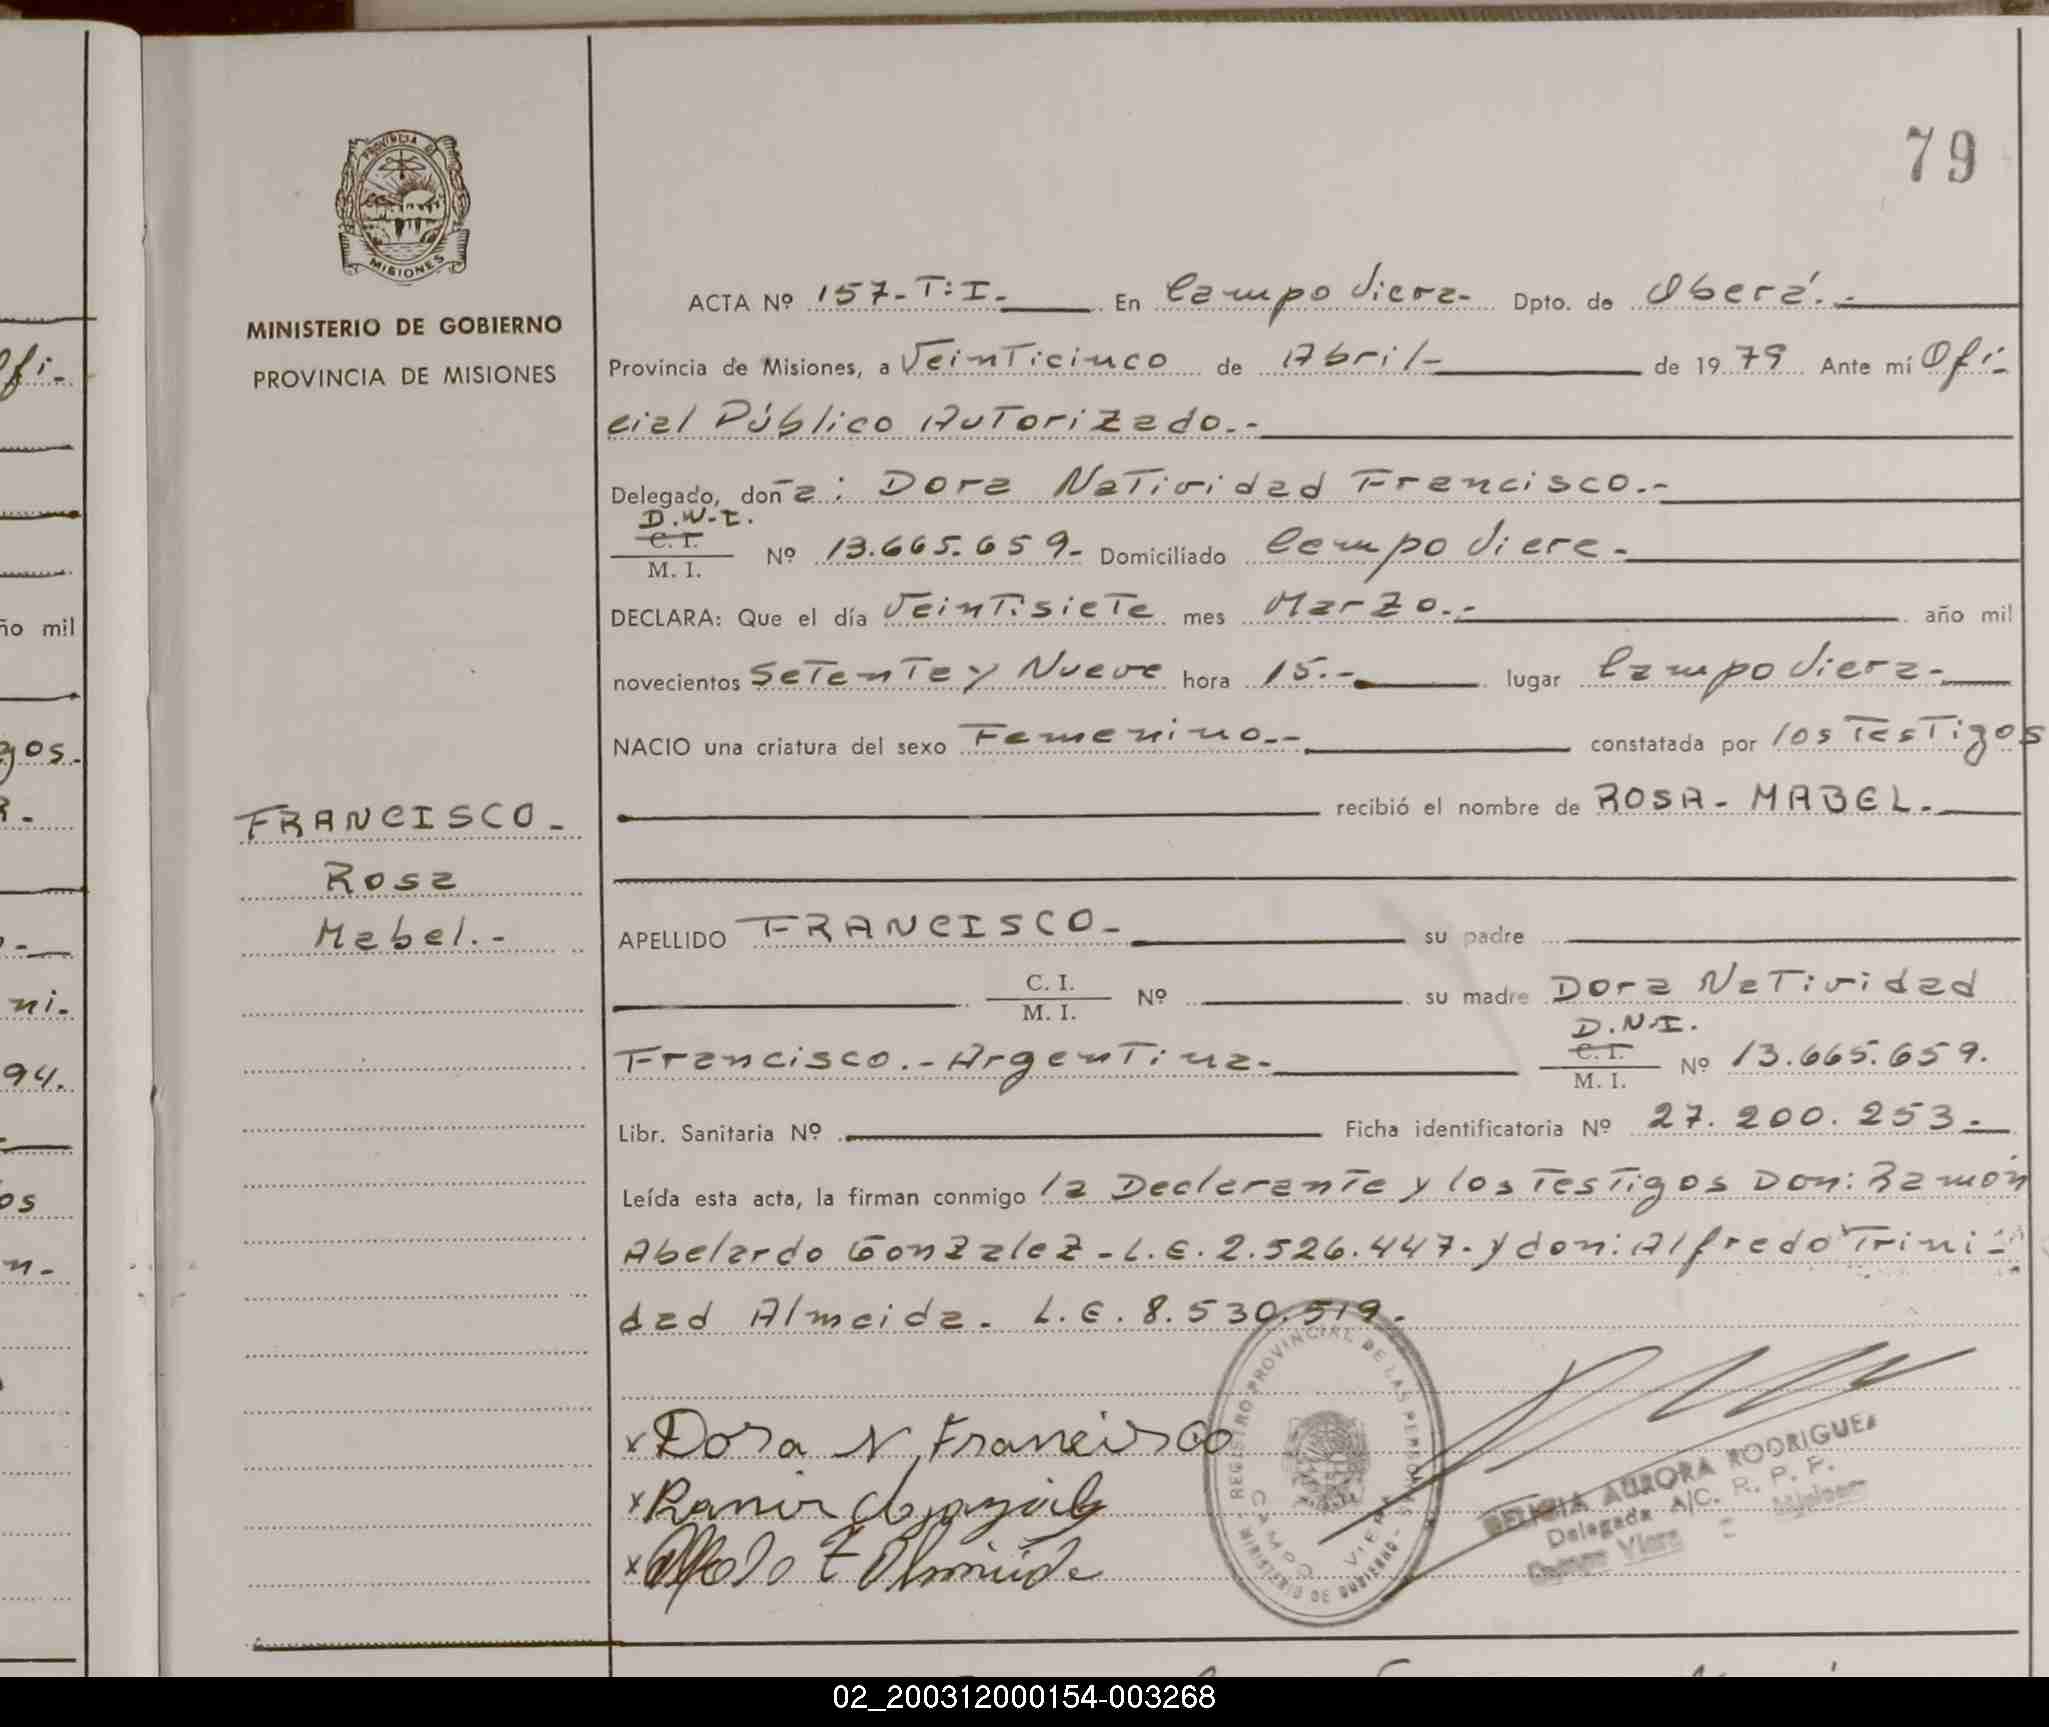 79
PROVINCIA D
MISIONES
MINISTERIO DE GOBIERNO
PROVINCIA DE MISIONES
FRANCISCO -
Rosa
Mabel. -
ACTA Nº 157-T:I- En Campo Viera- Dpto. de Oberá. -
Provincia de Misiones, a Veinticinco de Abril- de 1979 Ante mí Ofi-
cial Público Autorizado. -
Delegado, doña: Dora Natividad Francisco. -
D.N.I.
C. I.
M. I.
Nº 13.665.659- Domiciliado Campo Viera-
DECLARA: Que el día Veintisiete mes Marzo. - año mil
novecientos Setenta y Nueve hora 15. - lugar Campo Viera-
NACIO una criatura del sexo Femenino. - constatada por los Testigos
recibió el nombre de ROSA - MABEL. -
APELLIDO FRANCISCO - su padre
C. I.
M. I.
Nº su madre Dora Natividad
Francisco. - Argentina-
D.N.I.
C. I.
M. I.
Nº 13.665.659.
Libr. Sanitaria Nº Ficha identificatoria Nº 27.200.253-
Leída esta acta, la firman conmigo la Declarante y los Testigos Don: Ramón
Abelardo Gonzalez - L.E. 2.526.447- y don: Alfredo Trini-
dad Almeida - L.E. 8.530.519-
x Dora N Francisco
REGISTRO PROVINCIAL DE LAS PERSONAS
CAMPO VIERA
MINISTERIO DE GOBIERNO
AURORA RODRIGUEZ
Delegada A/C. R. P. P.
Campo Viera Misiones
Ofi-
ño mil
gos.
ni.
94.
os
n-
02_200312000154-003268